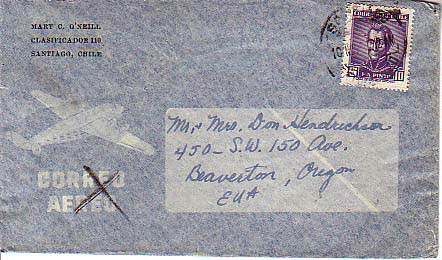 MARY C. O'NEILL
CLASIFICADOR 110
SANTIAGO, CHILE
10
Mr Mrs. Don Hendrickson
450 - S.W. 150 Ave.
Beaverton, Oregon
EUA
CORREO
AEREO